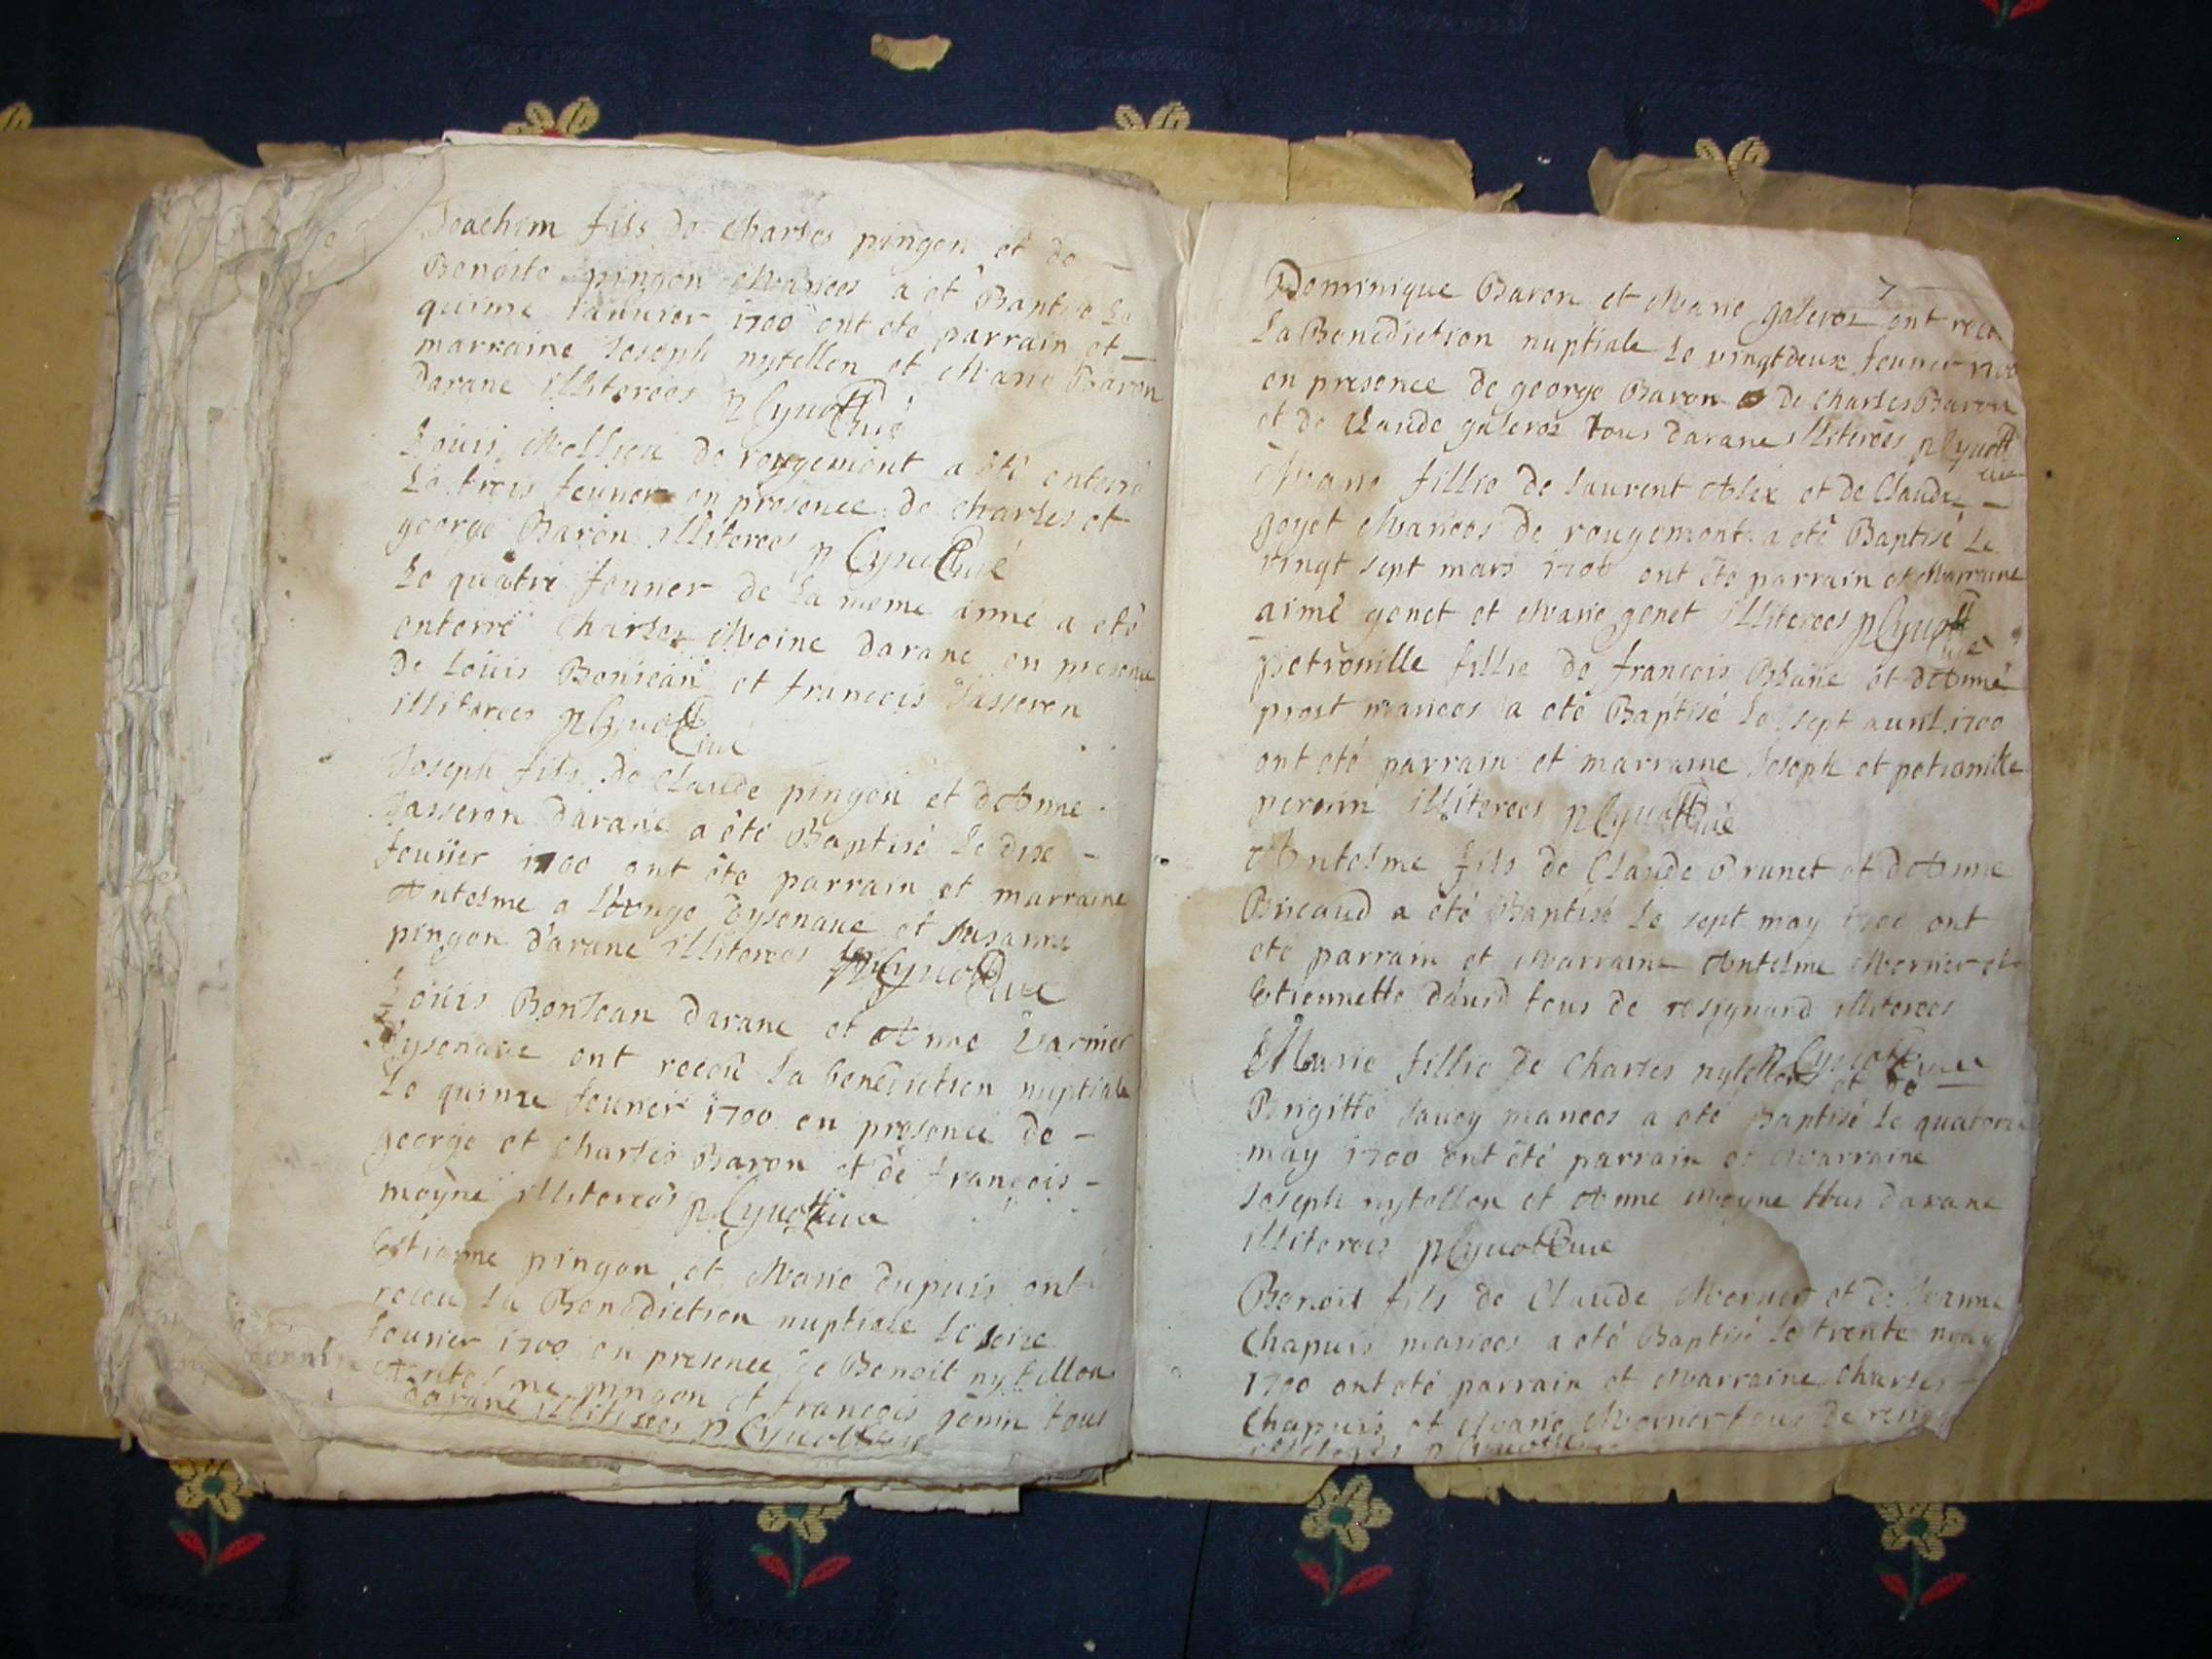 Joachim fils de Charles pingon et de
Benoite pingon Mariees a et Baptise Le
quinze Januier 1700 ont eté parrain et
marraine Joseph nytellon et Marie Baron
darane illiterees
Loüis de rougemont a eté enterré
Le trois feurier en presence de charles et
george Baron illiterees
Le quatre feurier de La meme anné a eté
enterré Charles Moine darane en presence
de Loüis Bonjean et francois Jasseron
illiterees
Joseph fils de Claude pingon et dAnne
Jasseron darane a eté Baptisé Le dix
feurier 1700 ont ete parrain et marraine
Antelme a dysenaue et Susanne
pingon darane illiterees
Loüis BonJean darane et Anne Varnier
dysenaue ont receu la benediction nuptiale
Le quinze feurier 1700 en presence de
george et charles Baron et de francois
moyne illiterees
Estienne pingon et Marie dupuis ont
receu La Benediction nuptiale le seize
feurier 1700 en presence de Benoit nytellon
Antelme pingon et francois genin tous
darane illiterees
7
Dominique Baron et Marie galeroz ont receu
La Benediction nuptiale Le vingtdeux feurier 1700
en presence de george Baron de charles Baron
et de Claude galeroz tous darane illiterees
Marie fillie de Laurent Alex et de Claudine
goyet Mariees de rougemont a eté Baptisé Le
vingt sept mars 1700 ont ete parrain et Marraine
aimé genet et Marie genet illiterees
petronille fillie de francois Blane et dAnne
prost mariees a eté Baptisé Le sept auril 1700
ont eté parrain et marraine Joseph et petronille
illiterees
Antelme fils de Claude Brunet et dAnne
Bricaud a eté Baptisé Le sept may 1700 ont
ete parrain et Marraine Antelme Mornier et
Etiennette dauid tous de resignard illiterees
Marie fillie de Charles nytellon et de
Brigitte Jauey mariees a eté Baptisé Le quatorze
may 1700 ont été parrain et Marraine
Joseph nytellon et Anne Moyne tous darane
illiterees
Benoit fils de Claude Mornier et de Jeanne
Chapuis mariees a eté Baptisé Le trente may
1700 ont eté parrain et Marraine Charles
Chapuis et Marie Mornier tous de